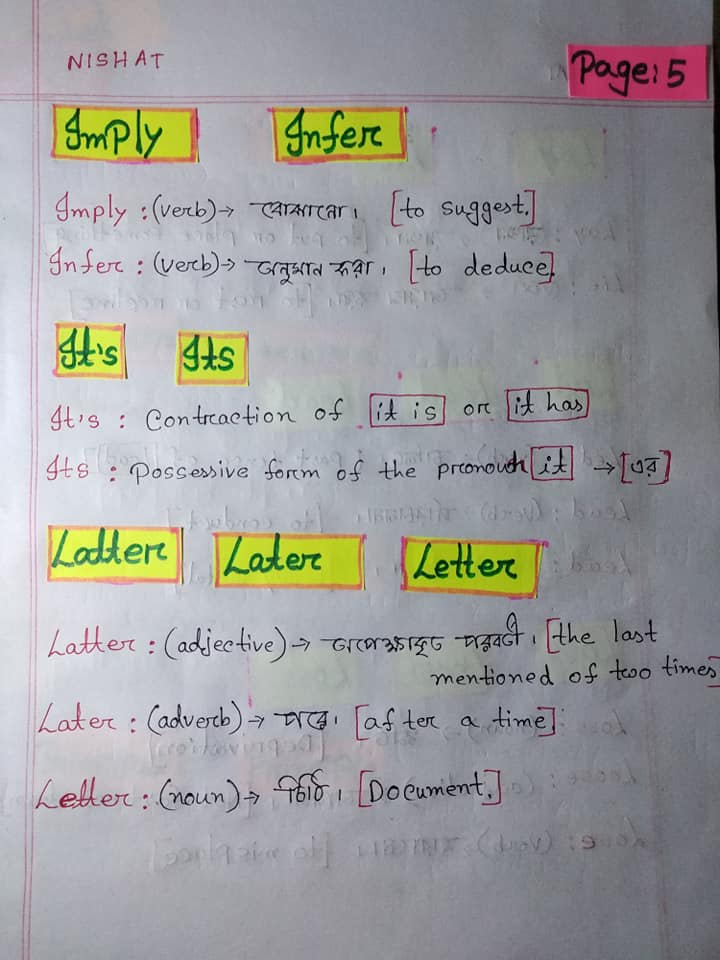 NISHAT
Page: 5
Imply Infer
Imply : (verb) → বোঝানো। [to suggest.]
Infer : (verb) → অনুমান করা। [to deduce].
It's Its
It's : Contraction of it is or it has
Its : Possessive form of the pronoun it → [এর]
Latter Later Letter
Latter : (adjective) → অপেক্ষাকৃত পরবর্তী। [the last
mentioned of two times]
Later : (adverb) → পরে। [after a time]
Letter : (noun) → চিঠি। [Document.]